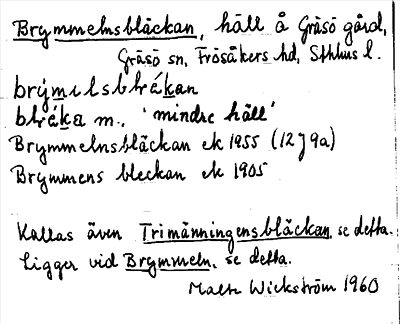 Brymmelnsbläckan, häll å Gräsö gård,
Gräsö sn, Frösåkers hd, Sthlms l.
brýmılsbłrákan
błráka m., 'mindre häll'
Brymmelnsbläckan ek 1955 (12J9a)
Brymmens bleckan ek 1905
Kallas även Trimänningensbläckan, se detta.
Ligger vid Brymmeln, se detta.
Malte Wickström 1960